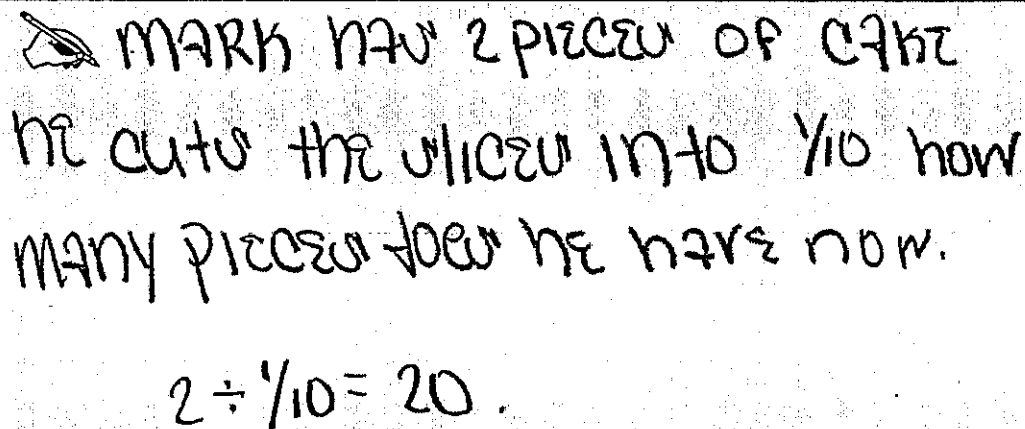 MARK has 2 pieces of cake
he cuts the slices into 1/10 how
many pieces does he have now.
2 ÷ 1/10 = 20.